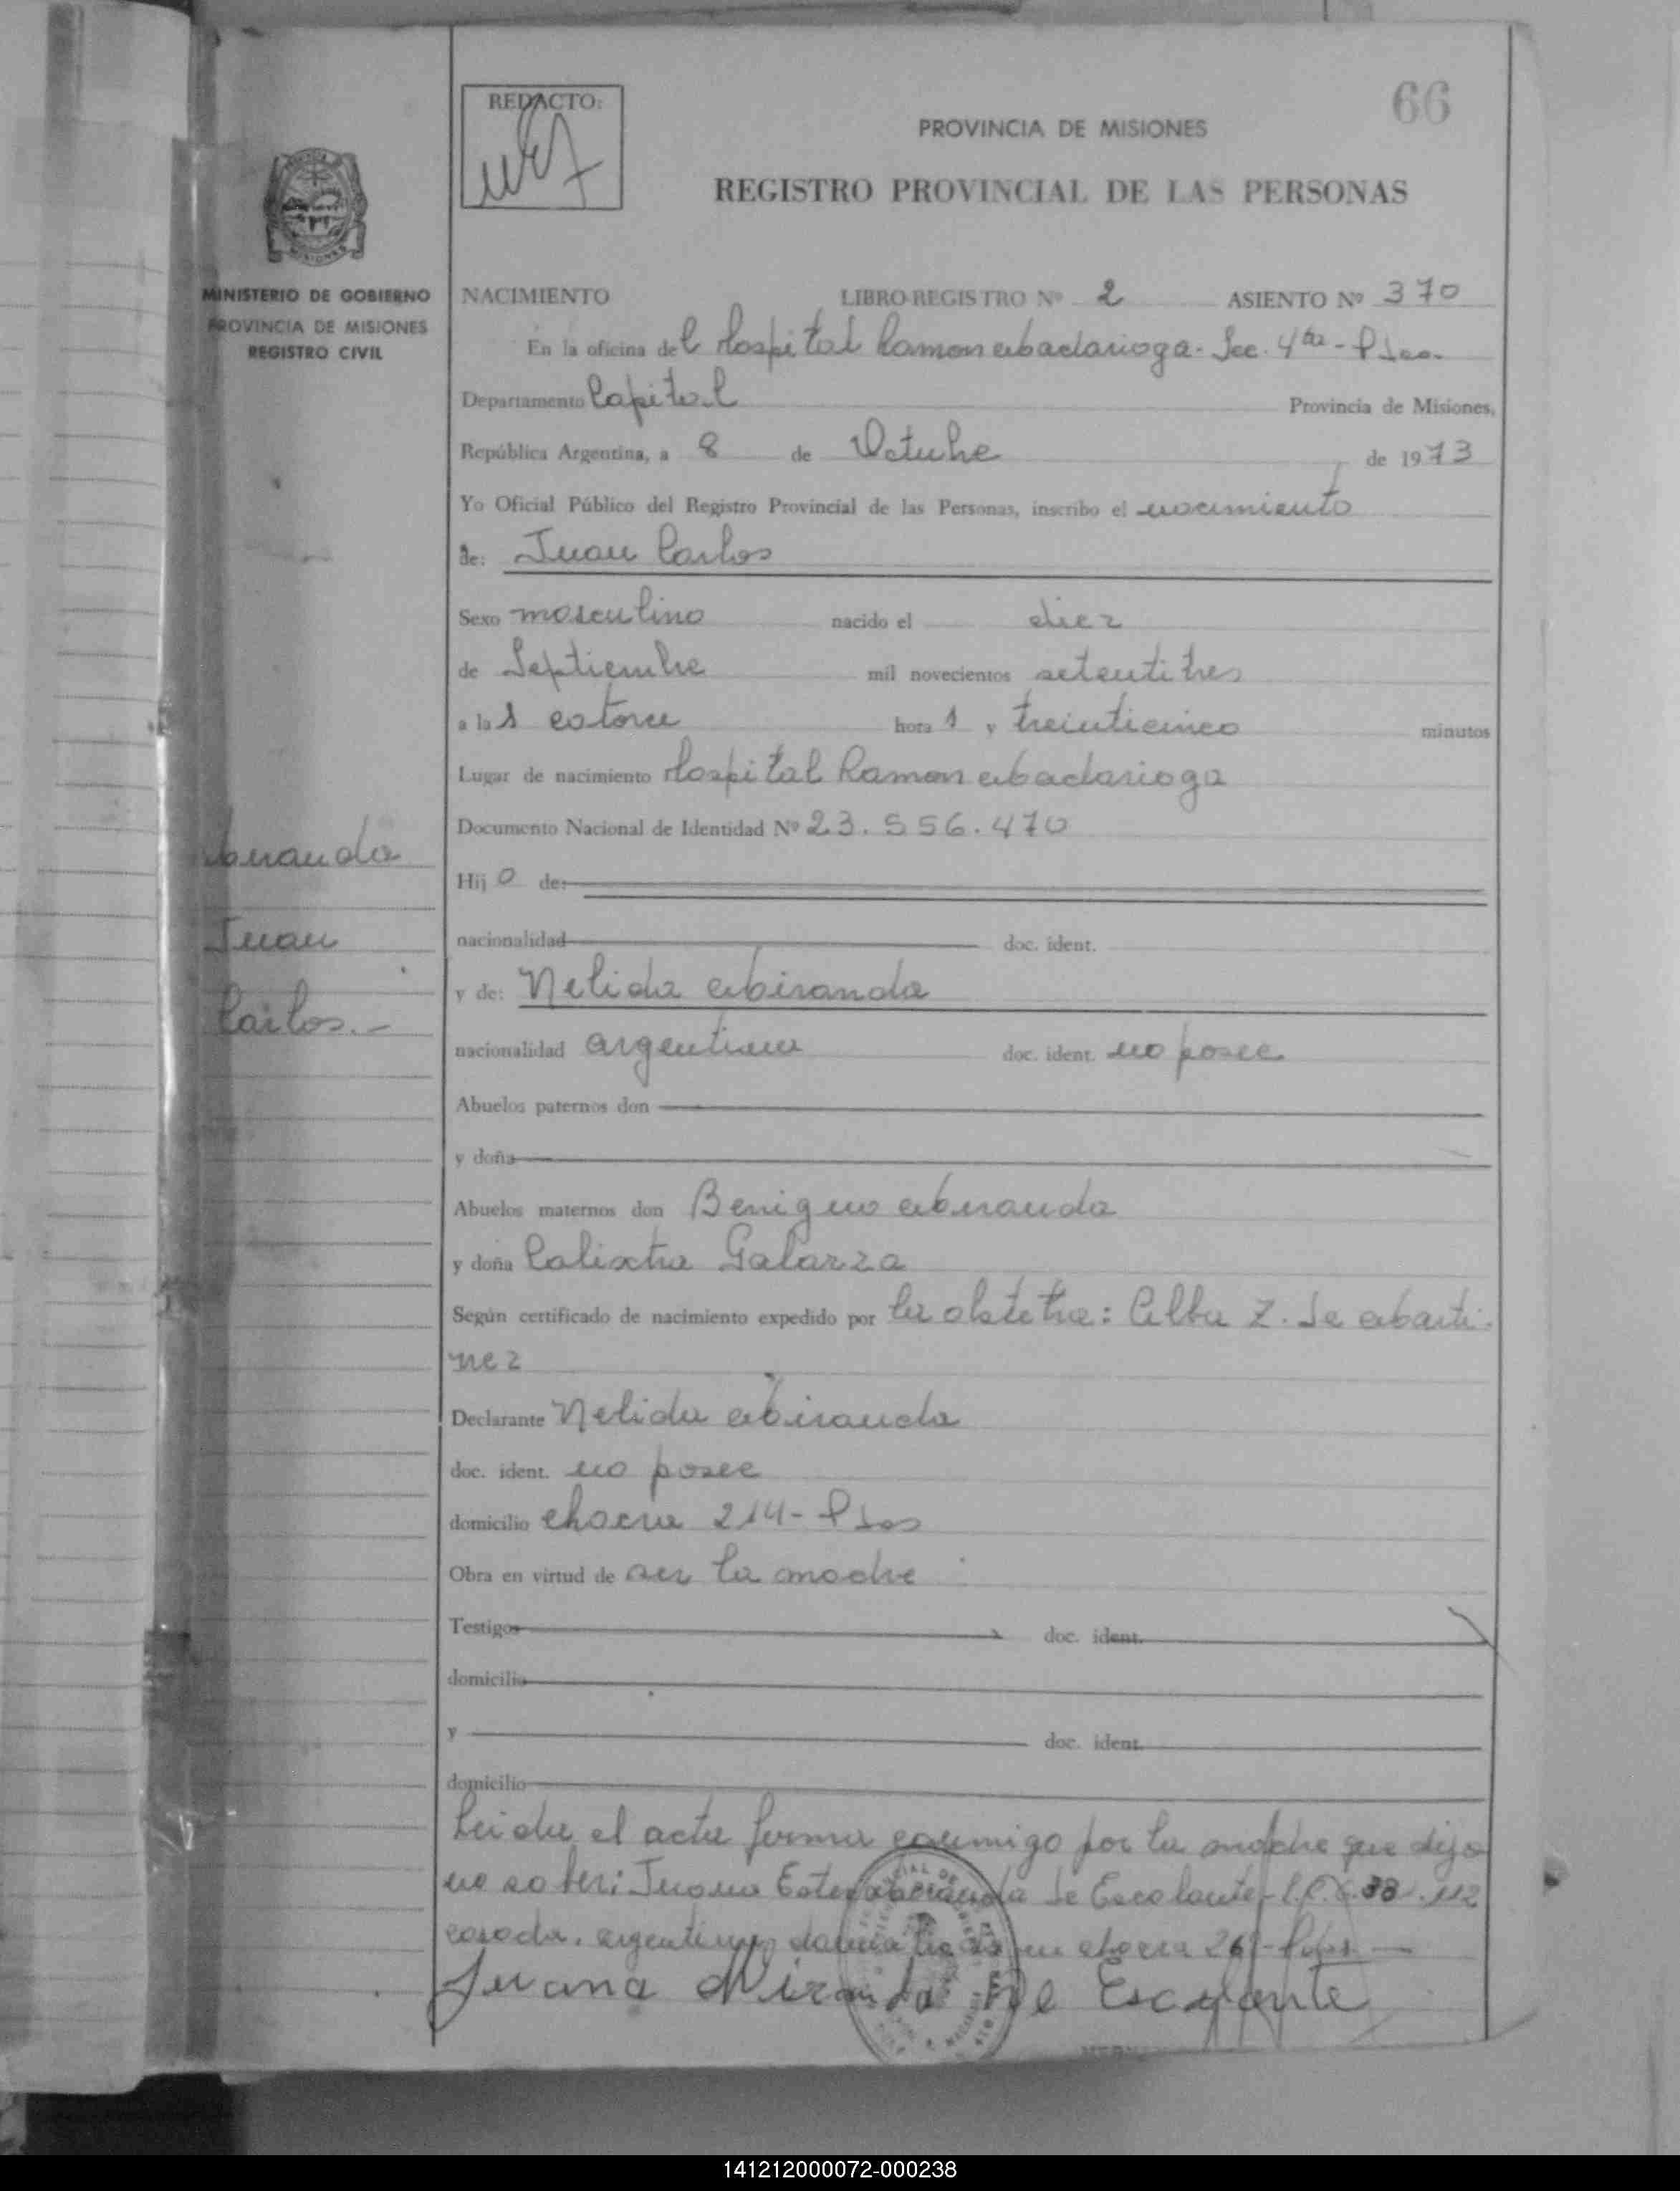 66
REDACTO:
PROVINCIA DE MISIONES
REGISTRO PROVINCIAL DE LAS PERSONAS
MINISTERIO DE GOBIERNO
PROVINCIA DE MISIONES
REGISTRO CIVIL
NACIMIENTO LIBRO-REGISTRO Nº 2 ASIENTO Nº 370
En la oficina del Hospital Ramon Madariaga - Sec. 4ta - Pdas.
Departamento Capital Provincia de Misiones,
República Argentina, a 8 de Octubre de 1973
Yo Oficial Público del Registro Provincial de las Personas, inscribo el nacimiento
de: Juan Carlos
Sexo masculino nacido el diez
de Septiembre mil novecientos setentitres
a las catorce horas y treinticinco minutos
Lugar de nacimiento Hospital Ramon Madariaga
Documento Nacional de Identidad Nº 23.556.470
Miranda
Juan
Carlos.-
Hijo de:
nacionalidad doc. ident.
y de: Nelida Miranda
nacionalidad argentina doc. ident. no posee
Abuelos paternos don
y doña
Abuelos maternos don Benigno Miranda
y doña Calixta Galarza
Según certificado de nacimiento expedido por la obstetra: Alba Z. de Marti-
nez
Declarante Nelida Miranda
doc. ident. no posee
domicilio chacra 214 - Pdas
Obra en virtud de ser la madre
Testigos doc. ident.
domicilio
y doc. ident.
domicilio
Leida el acta firma conmigo por la madre que dijo
no saber: Juana Ester Miranda de Escalante - L.C. 6.38 .112
casada, argentina, domiciliada en chacra 26 - Pdas. —
Juana Miranda De Escalante
141212000072-000238